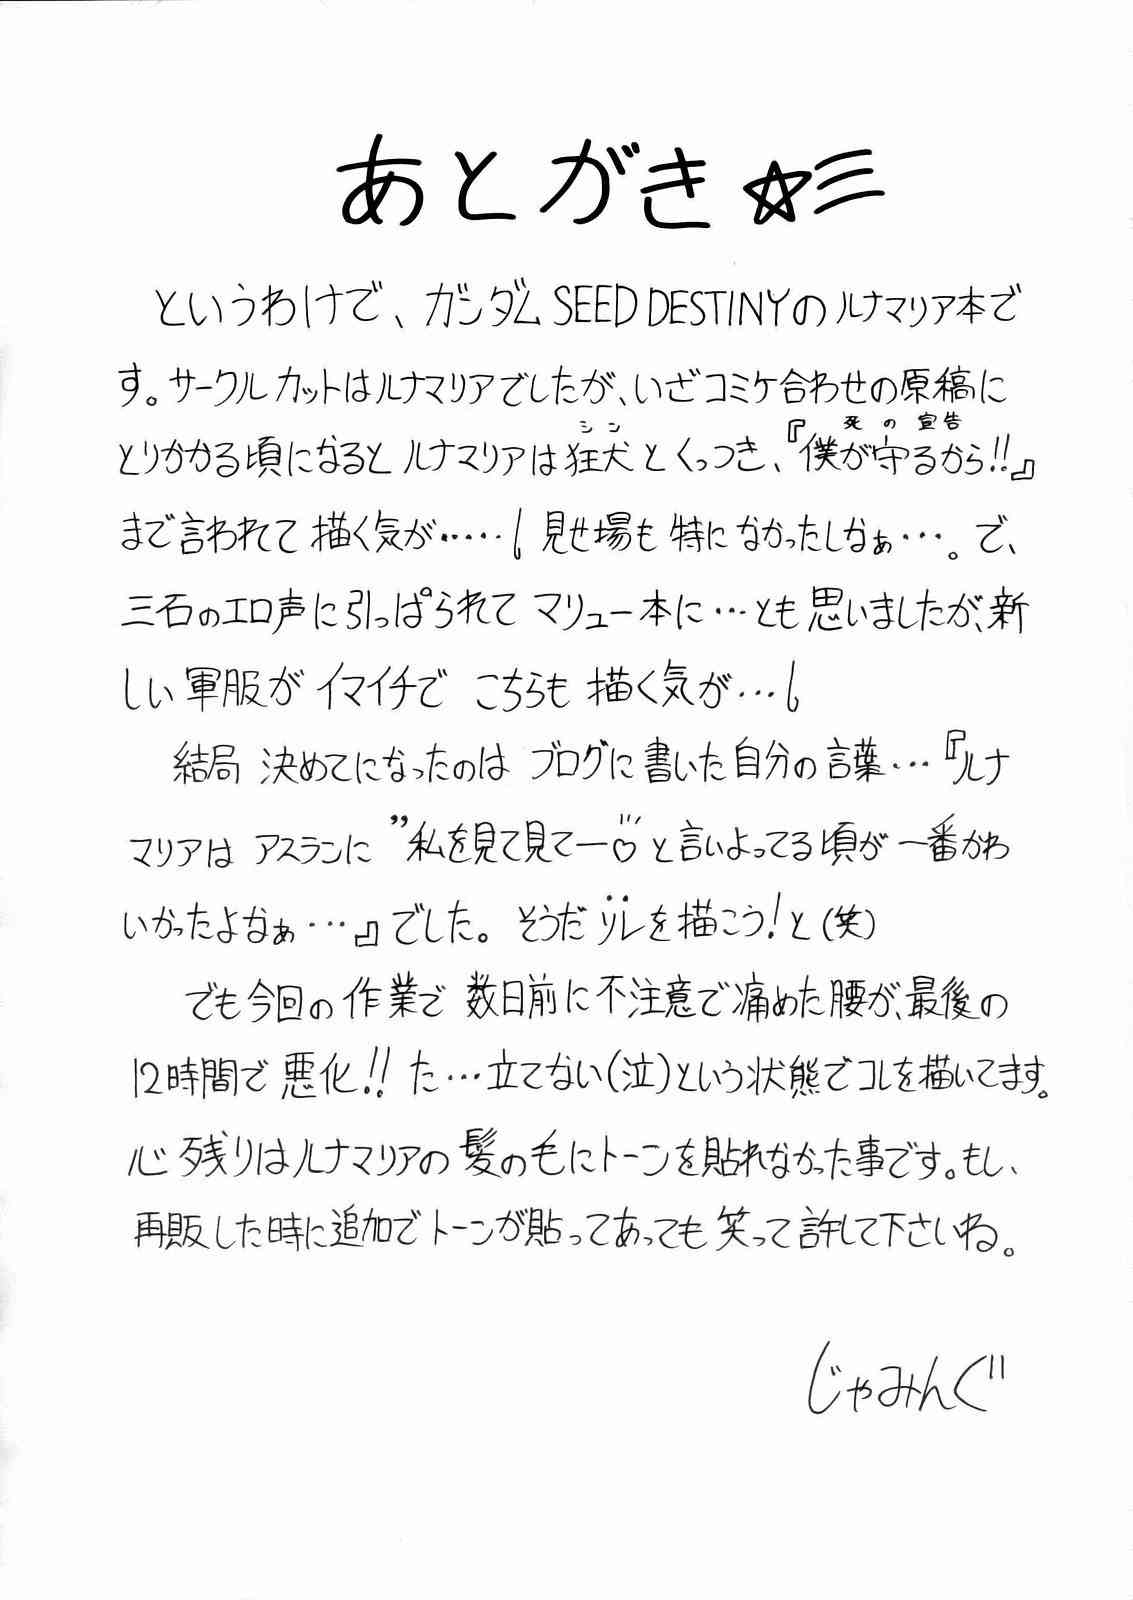 あとがき☆彡
というわけで、ガンダムSEED DESTINYのルナマリア本で
す。サークルカットはルナマリアでしたが、いざコミケ合わせの原稿に
シン 死の宣告
とりかかる頃になるとルナマリアは狂犬とくっつき、『僕が守るから!!』
まで言われて描く気が‥‥‥。見せ場も特になかったしなぁ…。で、
三石のエロ声に引っぱられてマリュー本に…とも思いましたが、新
しい軍服がイマイチでこちらも描く気が…
結局決めてになったのはブログに書いた自分の言葉…『ルナ
マリアはアスランに”私を見て見てー♡と言いよってる頃が一番かわ
いかったよなぁ…』でした。そうだソレを描こう!と(笑)
でも今回の作業で数日前に不注意で痛めた腰が、最後の
12時間で悪化!!た…立てない(泣)という状態でコレを描いてます。
心残りはルナマリアの髪の毛にトーンを貼れなかった事です。もし、
再販した時に追加でトーンが貼ってあっても笑って許して下さいね。
じゃみんぐ